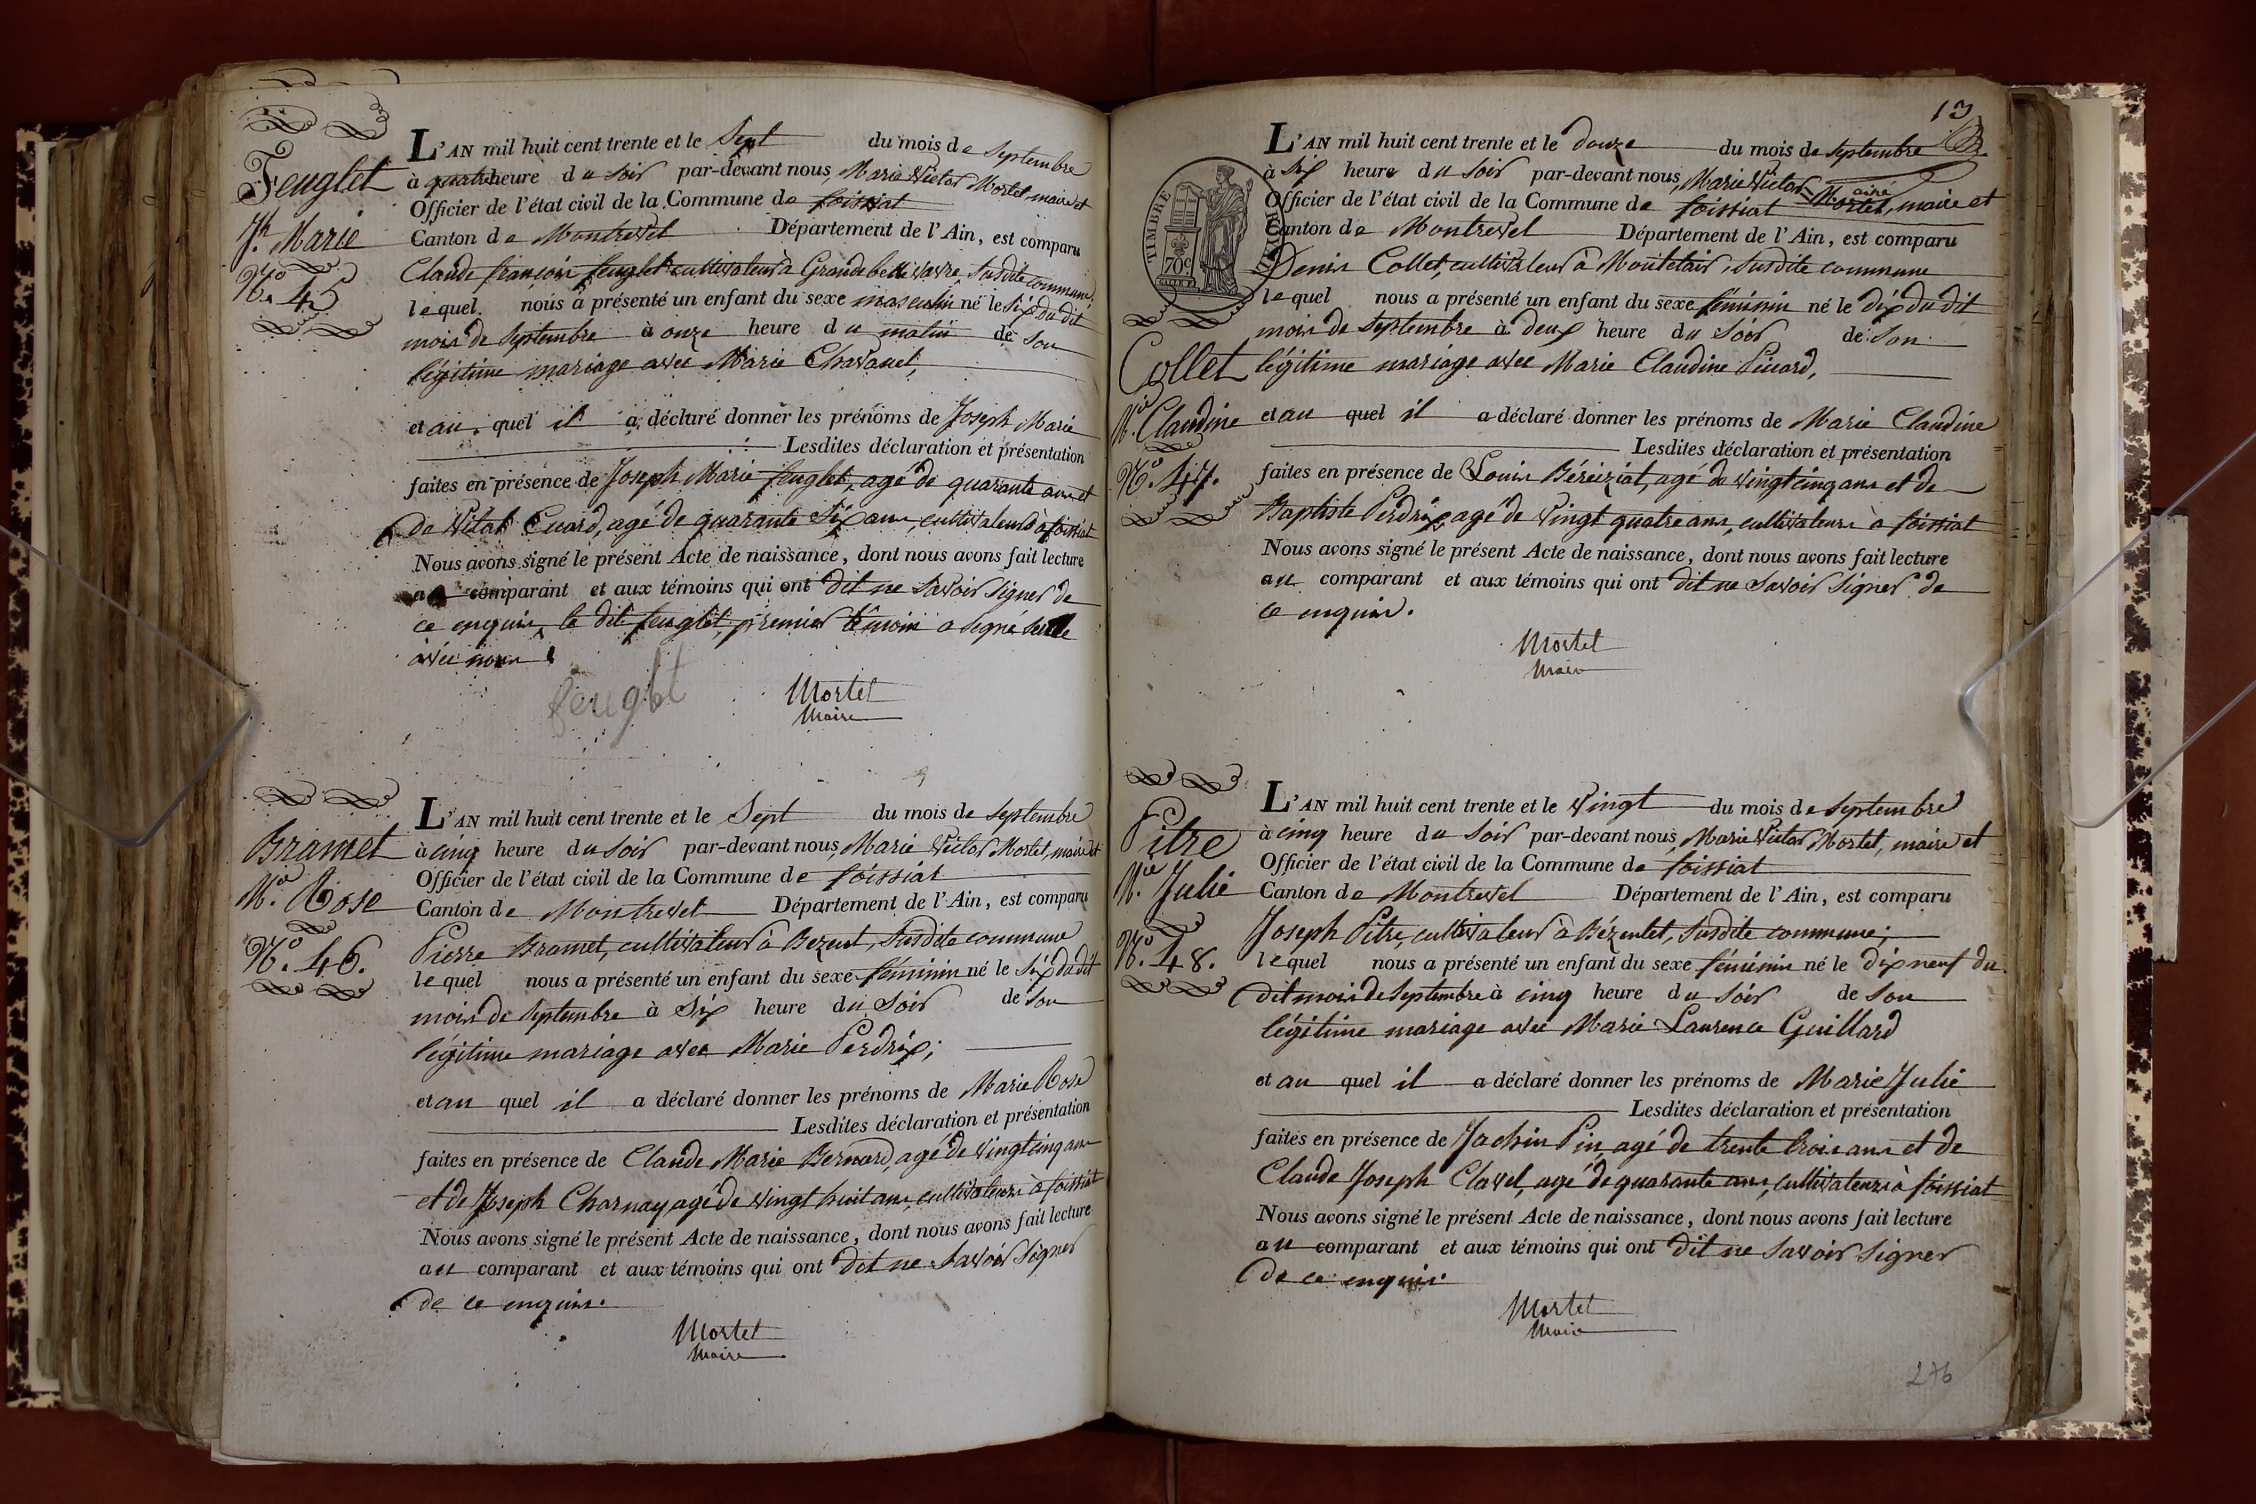 Feuglet
Jh. Marie
No. 45
L'AN mil huit cent trente et le Sept du mois de Septembre
à quatre heure du Soir par-devant nous, Marie Victor Mortel, maire et
Officier de l'état civil de la Commune de foissiat
Canton de Montrevel Département de l'Ain, est comparu
Claude françois feuglet cultivateur à Grandebelle vavre, Susdite commune;
lequel nous a présenté un enfant du sexe masculin né le Six du dit
mois de Septembre à onze heure du matin de Son
légitime mariage avec Marie Chavanet,
et au quel il a déclaré donner les prénoms de Joseph Marie
Lesdites déclaration et présentation
faites en présence de Joseph Marie feuglet, agé de quarante ans et
de Vital Cuard, agé de quarante Six ans, cultivateurs à foissiat
Nous avons signé le présent Acte de naissance, dont nous avons fait lecture
au comparant et aux témoins qui ont dit ne Savoir Signer de
ce enquis, le dit feuglet, premier témoin a signé
avec nous
feuglt
Mortel
Maire
Bramet
Mie. Rose
No. 46.
L'AN mil huit cent trente et le Sept du mois de Septembre
à cinq heure du Soir par-devant nous, Marie Victor Mortel, maire et
Officier de l'état civil de la Commune de foissiat
Canton de Montrevel Département de l'Ain, est comparu
Pierre Bramet, cultivateur à Bezent, Susdite commune
lequel nous a présenté un enfant du sexe féminin né le Six du dit
mois de Septembre à Six heure du Soir de Son
légitime mariage avec Marie Perdrix;
et au quel il a déclaré donner les prénoms de Marie Rose
Lesdites déclaration et présentation
faites en présence de Claude Marie Bernard, agé de vingt cinq ans
et de Joseph Charnay agé de vingt huit ans, cultivateurs à foissiat
Nous avons signé le présent Acte de naissance, dont nous avons fait lecture
au comparant et aux témoins qui ont dit ne Savoir Signer
de ce enquis.
Mortel
Maire
13
TIMBRE ROYAL
70c
Collet
Mie. Claudine
No. 47.
L'AN mil huit cent trente et le douze du mois de Septembre
à Six heure du Soir par-devant nous, Marie Victor Mortel, maire et
Officier de l'état civil de la Commune de foissiat
Canton de Montrevel Département de l'Ain, est comparu
Denis Collet, cultivateur à Montclair, Susdite commune
lequel nous a présenté un enfant du sexe féminin né le dix du dit
mois de Septembre à deux heure du Soir de Son
légitime mariage avec Marie Claudine Picard,
et au quel il a déclaré donner les prénoms de Marie Claudine
Lesdites déclaration et présentation
faites en présence de Louis Béréiziat, agé de vingt cinq ans et de
Baptiste Perdrix, agé de vingt quatre ans, cultivateurs à foissiat
Nous avons signé le présent Acte de naissance, dont nous avons fait lecture
au comparant et aux témoins qui ont dit ne Savoir Signer de
ce enquis.
Mortel
Maire
Pitre
Mie. Julie
No. 48.
L'AN mil huit cent trente et le vingt du mois de Septembre
à cinq heure du Soir par-devant nous, Marie Victor Mortel, maire et
Officier de l'état civil de la Commune de foissiat
Canton de Montrevel Département de l'Ain, est comparu
Joseph Pitre, cultivateur à Bézentet, Susdite commune;
lequel nous a présenté un enfant du sexe féminin né le dix neuf du
dit mois de Septembre à cinq heure du Soir de Son
légitime mariage avec Marie Laurence Guillard
et au quel il a déclaré donner les prénoms de Marie Julie
Lesdites déclaration et présentation
faites en présence de Jachin Pin, agé de trente trois ans et de
Claude Joseph Clavel, agé de quarante ans, cultivateurs à foissiat
Nous avons signé le présent Acte de naissance, dont nous avons fait lecture
au comparant et aux témoins qui ont dit ne Savoir Signer
de ce enquis.
Mortel
Maire
276